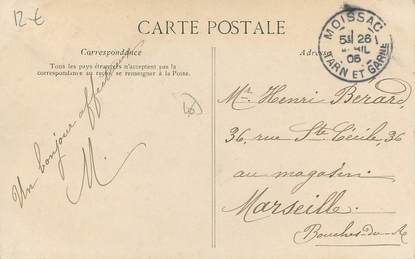 12 €
CARTE POSTALE
Correspondance
Tous les pays étrangers n'acceptent pas la
correspondance au recto, se renseigner à la Poste.
Un bonjour affectueux
M.
Adresse
MOISSAC
5E 26
AVRIL
06
TARN ET GARNE
Mr. Henri Berard,
36, rue Ste Cécile, 36
au magasin.
Marseille.
Bouches-du-R